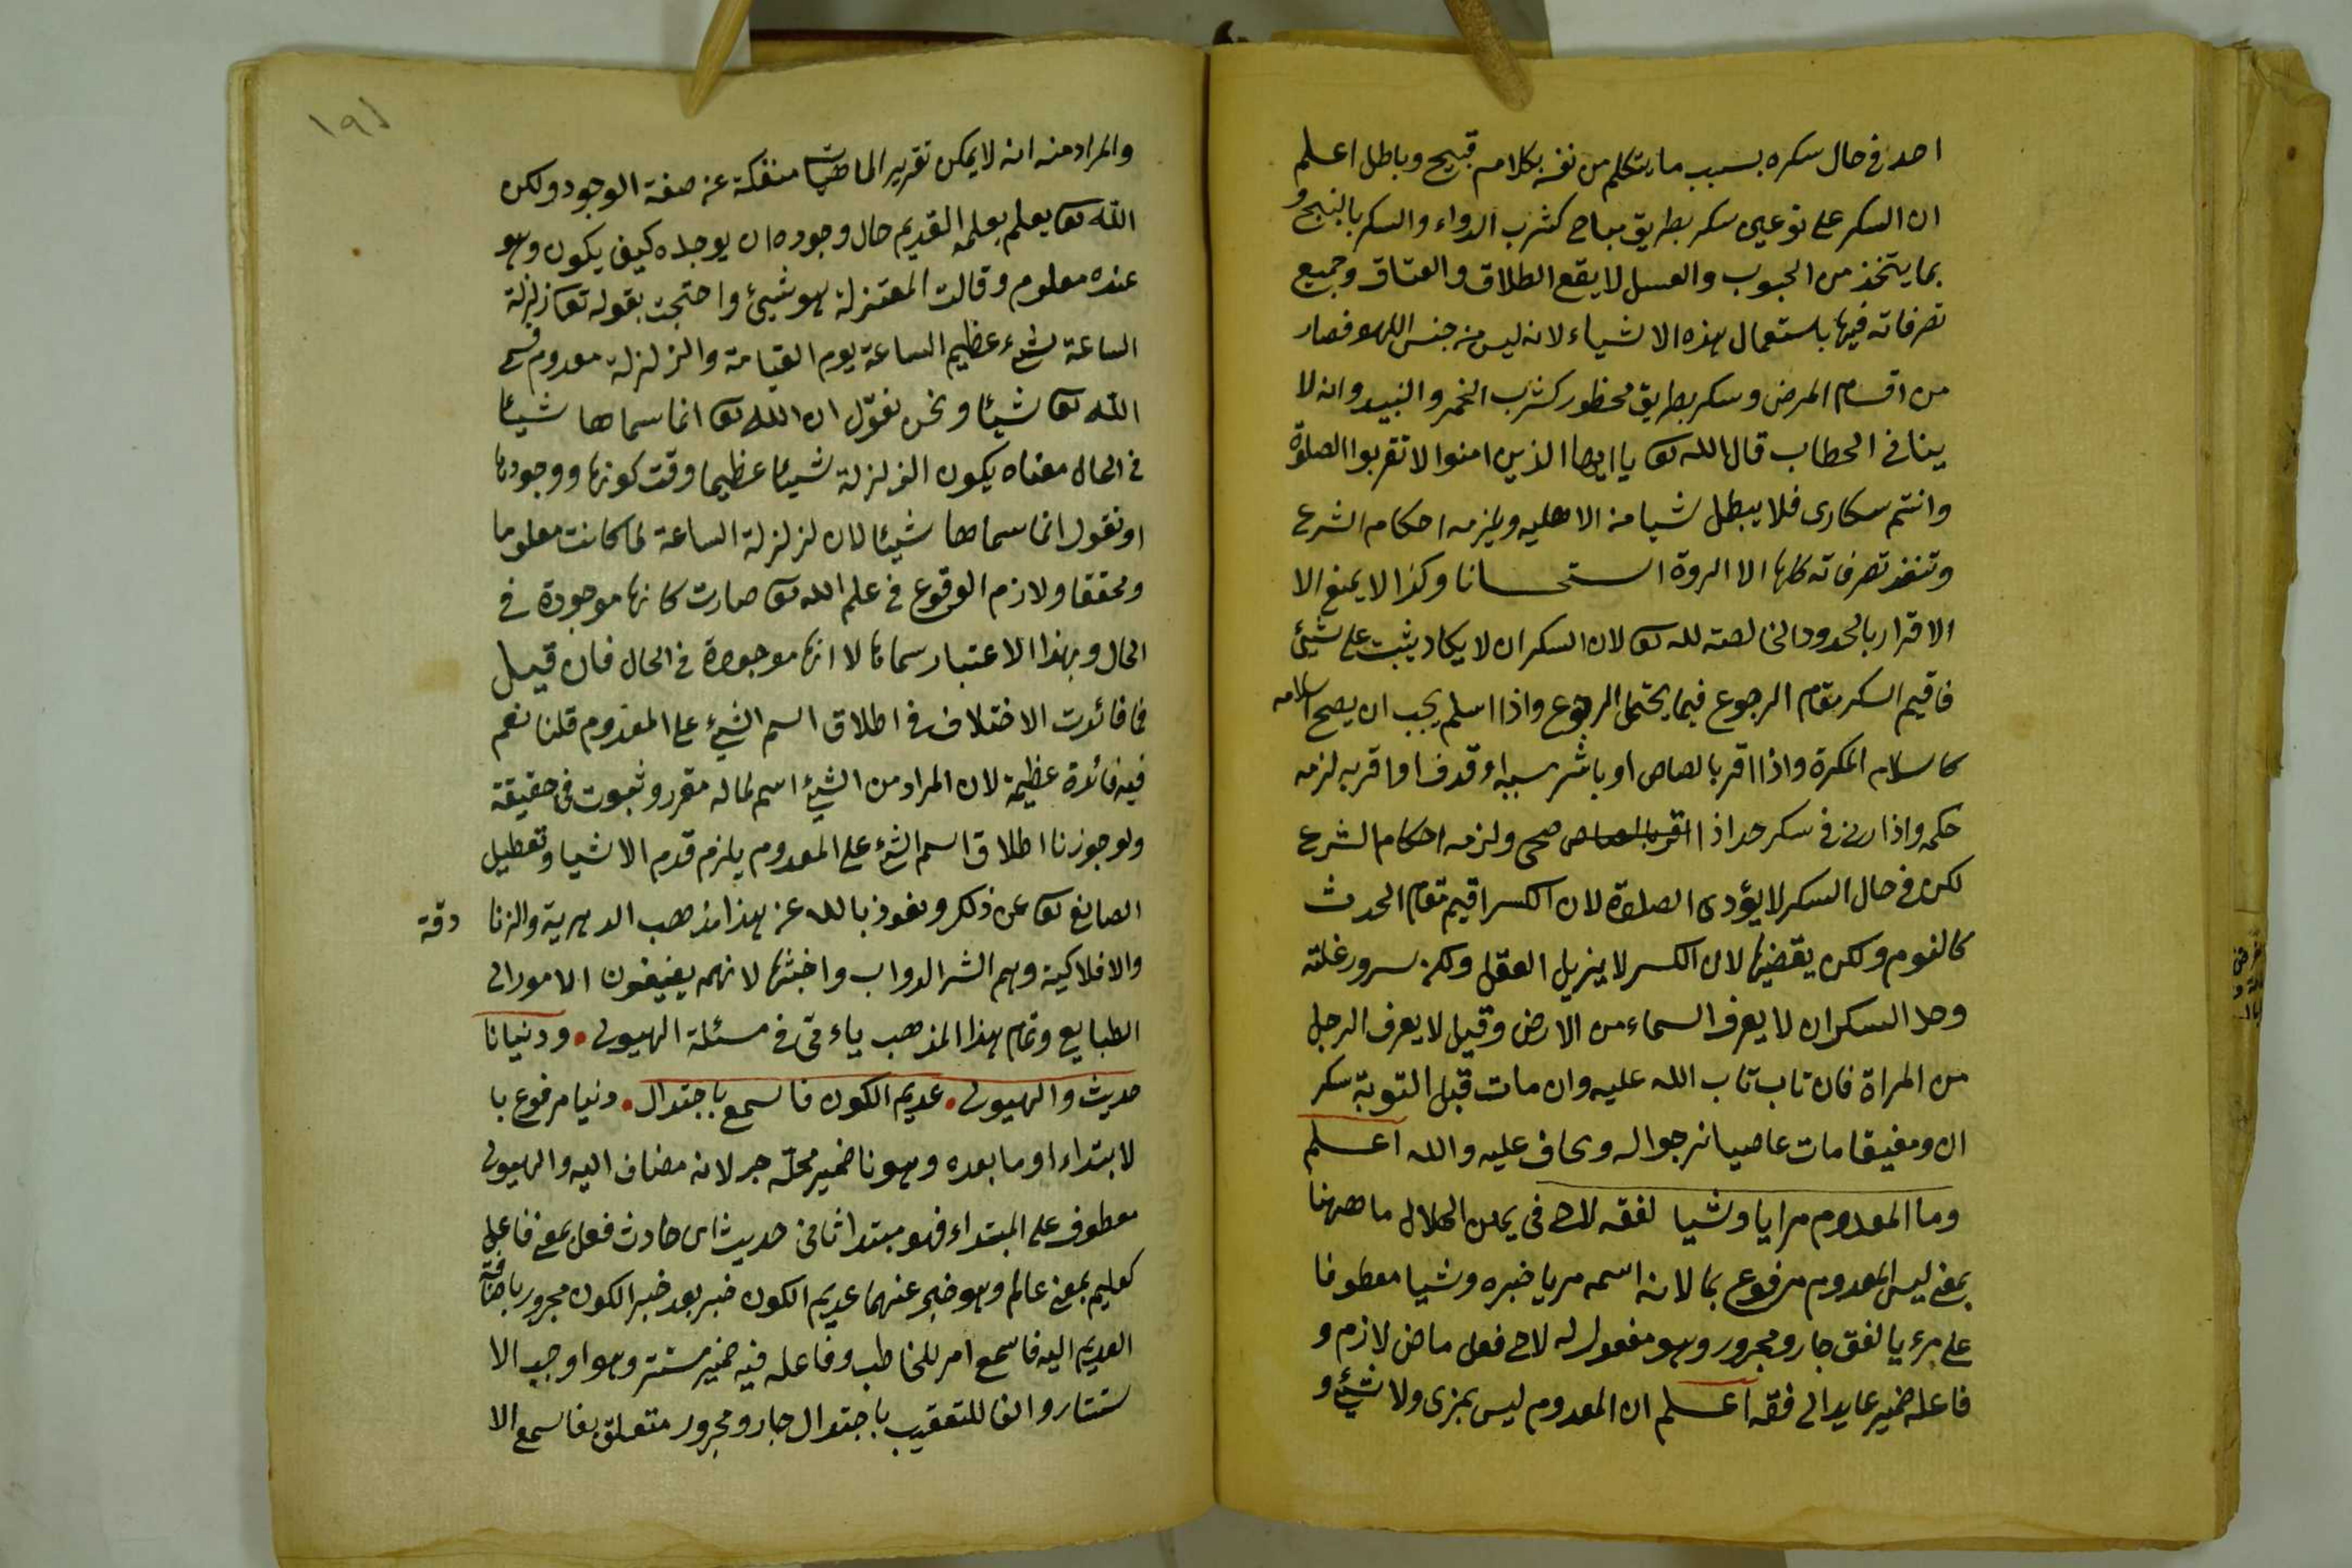 احد في حال سكره بسبب ما يتكلم من نفسه بكلام قبيح وباطل اعلم
ان السكر على نوعين سكر بطريق مباح كشرب الدواء والسكر بالبنج و
بما يتخذ من الحبوب والعسل لا يقع الطلاق والعتاق وجميع
تصرفاته فيها باستعمال هذه الاشياء لانه ليس من جنس اللهو فصار
من اقسام المرض وسكر بطريق محظور كشرب الخمر والنبيد وانه لا
ينافي الخطاب قال الله تعا يا ايها الذين امنوا لا تقربوا الصلوة
وانتم سكارى فلا يبطل شيا من الاهليه ويلزمه احكام الشرع
وتنفذ تصرفاته كلها الا الردة استحسانا وكذا لا يمنع الا
الاقرار بالحدود الخالصة لله تعا لان السكران لا يكاد يثبت على شيئ
فاقيم السكر مقام الرجوع فيما يحتمل الرجوع واذا اسلم يجب ان يصح اسلامه
كاسلام المكره واذا اقر بالصاص او باشر سببه او قدف او اقر به لزمه
حكمه واذا زنى في سكر حد اذا صحى ولزمه احكام الشرع
لكن في حال السكر لا يؤدى الصلوة لان السكر اقيم مقام الحدث
كالنوم ولكن يقضيها لان السكر لا يزيل العقل ولكن سرور غلته
وحد السكران لا يعرف السماء من الارض وقيل لا يعرف الرجل
من المراة فان تاب تاب الله عليه وان مات قبل التوبة سكر
ان ومفيقا مات عاصيا نرجوا له ويخاف عليه والله اعلم
وما المعدوم مرايا وشيا لفقه لاح في يمن الهلال ما ههنا
بمعنى ليس المعدوم مرفوع بما لانه اسمه مريا خبره وشيا معطوفا
على مرءيا لفقه جار ومجرور وهو مفعول له لاح فعل ماض لازم و
فاعله ضمير عايد الى فقه اعلم ان المعدوم ليس بمرى ولا شيئ و
١٩١
والمراد منه انه لا يمكن تقرير الماهيات منفكة عن صفة الوجود ولكن
الله تعا يعلم بعلمه القديم حال وجوده ان يوجده كيف يكون وهو
عنده معلوم وقالت المعتزلة هو شيئ واحتجت بقوله تعا زلزلة
الساعة لشئ عظيم الساعة يوم القيامة والزلزلة معدوم
الله تعا شيئا ونحن نقول ان الله تعا انما سماها شيئا
في الحال معناه يكون الزلزلة شيئا عظيما وقت كونها ووجودها
او نقول انما سماها شيئا لان لزلزلة الساعة لما كانت معلوما
ومحققا ولازم الوقوع في علم الله تعا صارت كانها موجودة في
الحال وبهذا الاعتبار سماها لا انها موجودة في الحال فان قيل
فما فائدت الاختلاف في اطلاق اسم الشئ على المعدوم قلنا نعم
فيه فائدة عظيمة لان المراد من الشئ اسم لما له مقرر وثبوت في حقيقة
ولو جوزنا اطلاق اسم الشئ على المعدوم يلزم قدم الاشيا وتعطيل
الصانع تعا عن ذلك ونعوذ بالله عن هذا مذهب الدهرية والزنا
دقة
والافلاكية وهم الشر الدواب واخبثها لانهم يضيفون الامور الى
الطبايع وتمام هذا المذهب ياءتي في مسئلة الهيولى • ودنيانا
حديث والهيولى • عديم الكون فاسمع باجتدال • دنيا مرفوع با
لابتداء او ما بعده وهو نا ضمير محله جر لانه مضاف اليه والهيولى
معطوف على المبتداء فهو مبتدا ثاني حديث اى حادث فعل بمعنى فاعل
كعليم بمعنى عالم وهو خبر عنهما عديم الكون خبر بعد خبر الكون مجرور باضافة
العديم اليه فاسمع امر للخاطب وفاعله فيه ضمير مستتر وهو اوجب الا
ستتار والفا للتعقيب باجتدال جار ومجرور متعلق بفاسمع الا